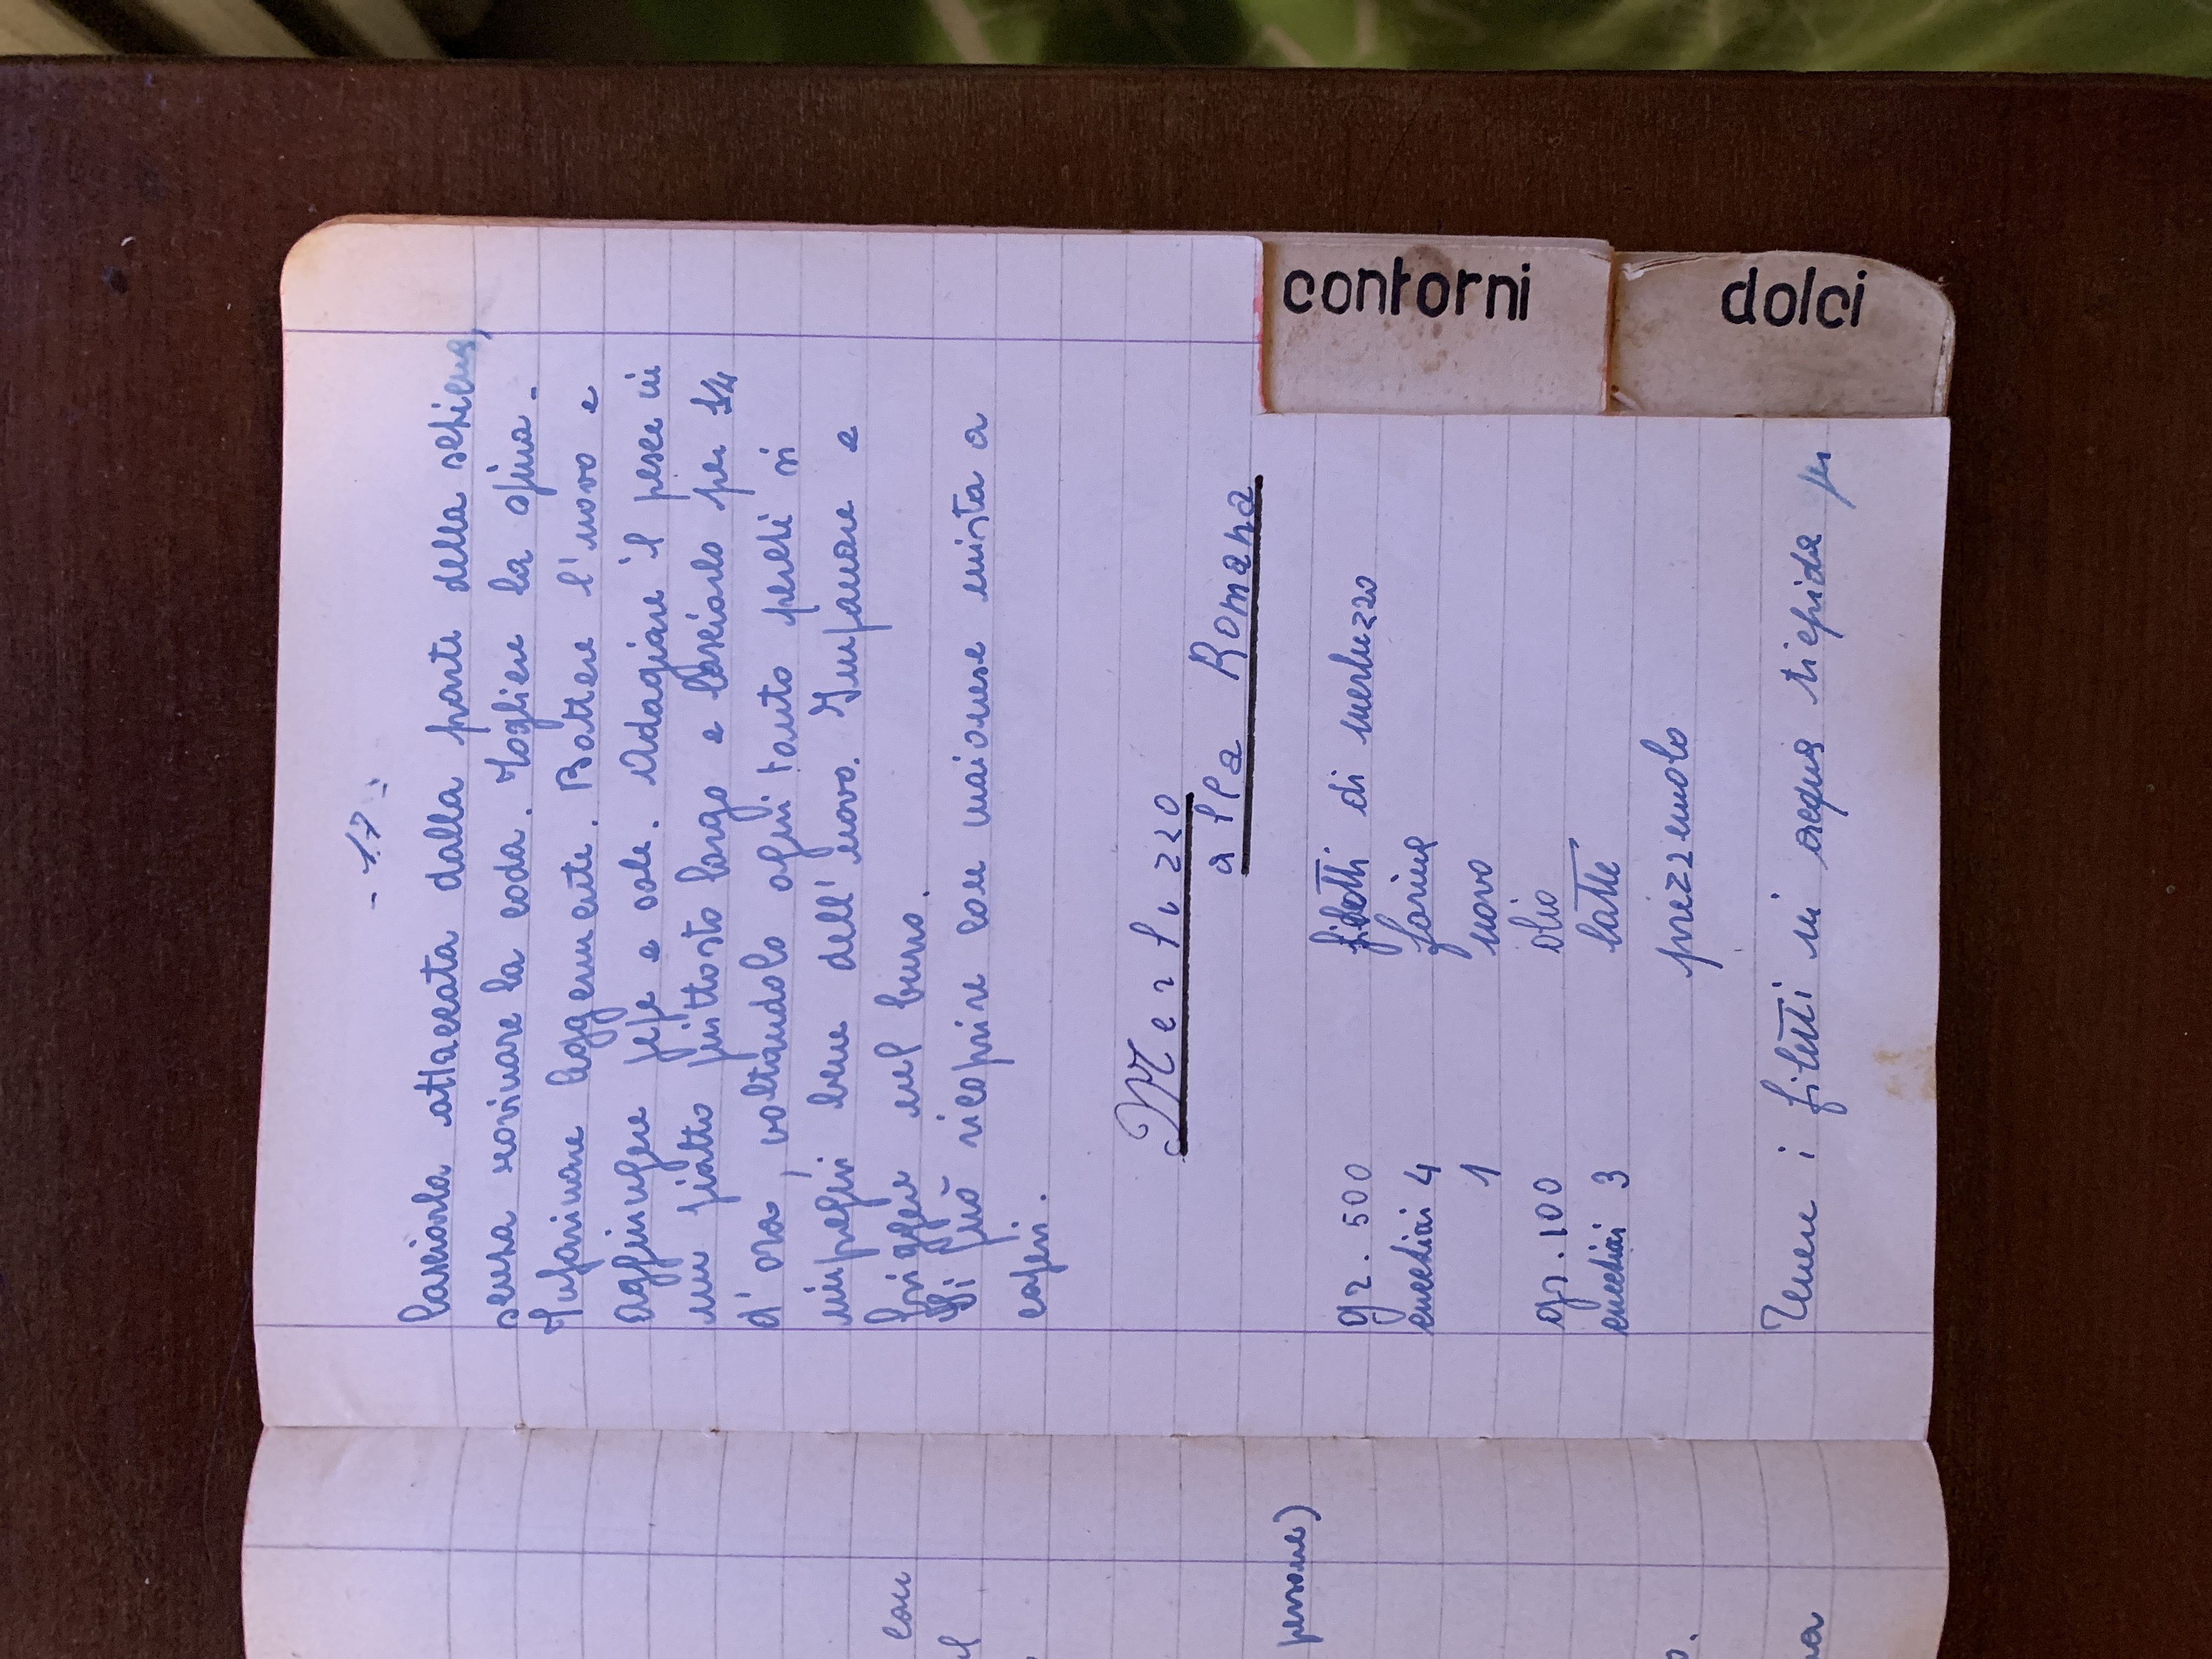 con
persone)
- 17 -
lasciarla attaccata dalla parte della schiena,
senza rovinare la coda. Togliere la spina -
Infarinare leggermente. Battere l'uovo e
aggiungere pepe e sale. Adagiare il pesce in
un piatto piuttosto largo e lasciarlo per 1/4
d'ora, voltandolo ogni tanto perchè si
impregni bene dell'uovo. Impanare e
friggere nel burro.
Si può ricoprire con maionese mista a
caperi.
Merluzzo
alla Romana
gr. 500 filetti di merluzzo
cucchiai 4 farina
1 uovo
gr. 100 olio
cucchiai 3 latte
prezzemolo
Tenere i filetti in acqua tiepida per
contorni
dolci